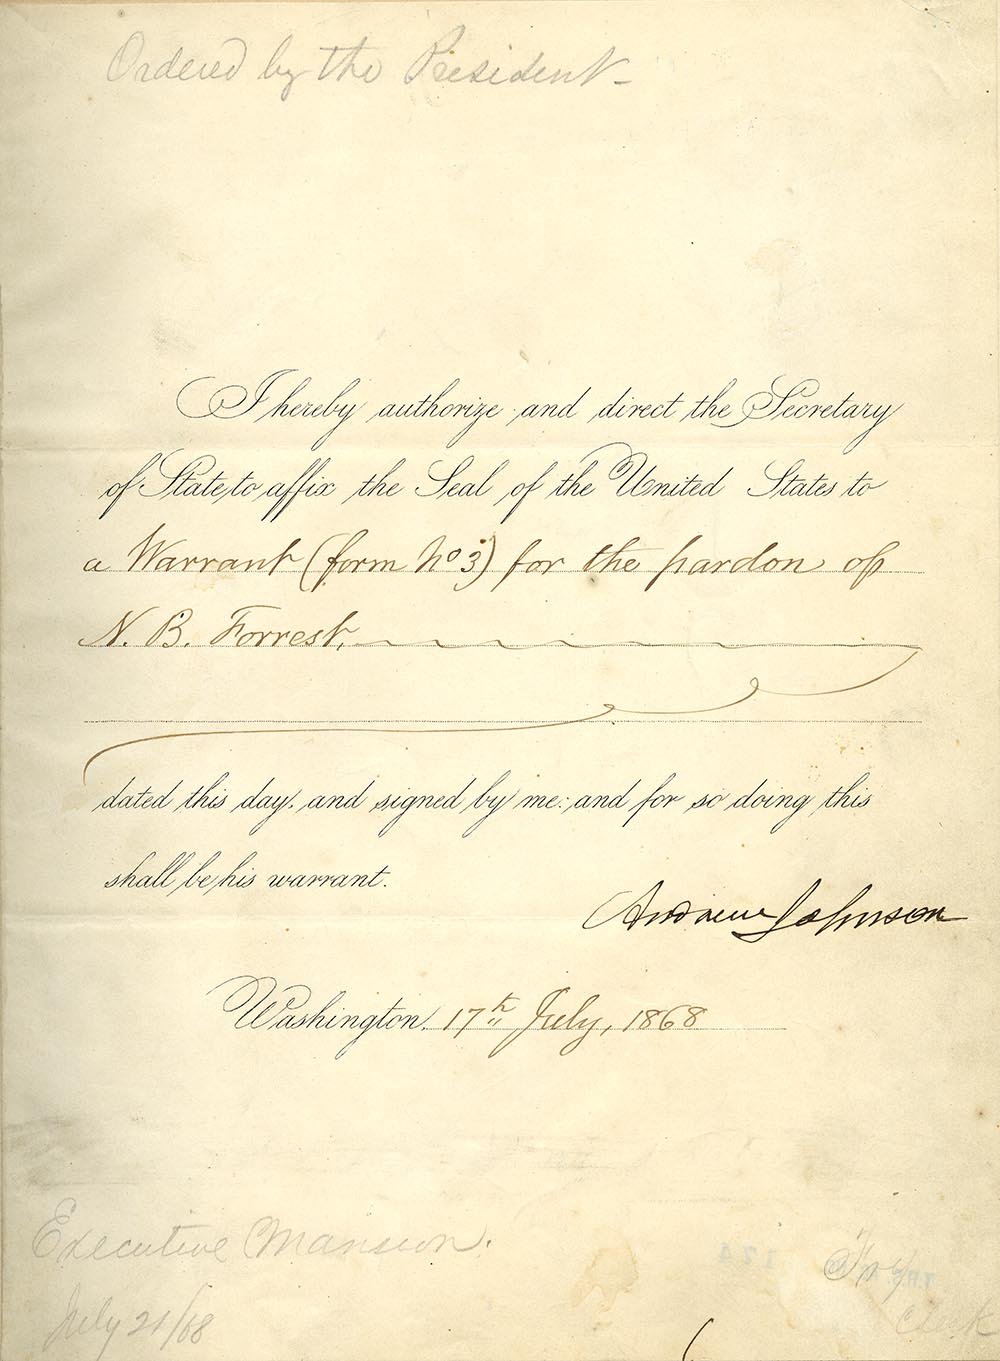 Ordered by the President
I hereby authorize and direct the Secretary
of State to affix the Seal of the United States to
a Warrant (form No 3) for the pardon of
N. B. Forrest,
dated this day, and signed by me: and for so doing this
shall be his warrant.
Andrew Johnson
Washington, 17th July, 1868
Executive Mansion.
July 21/68
Clerk